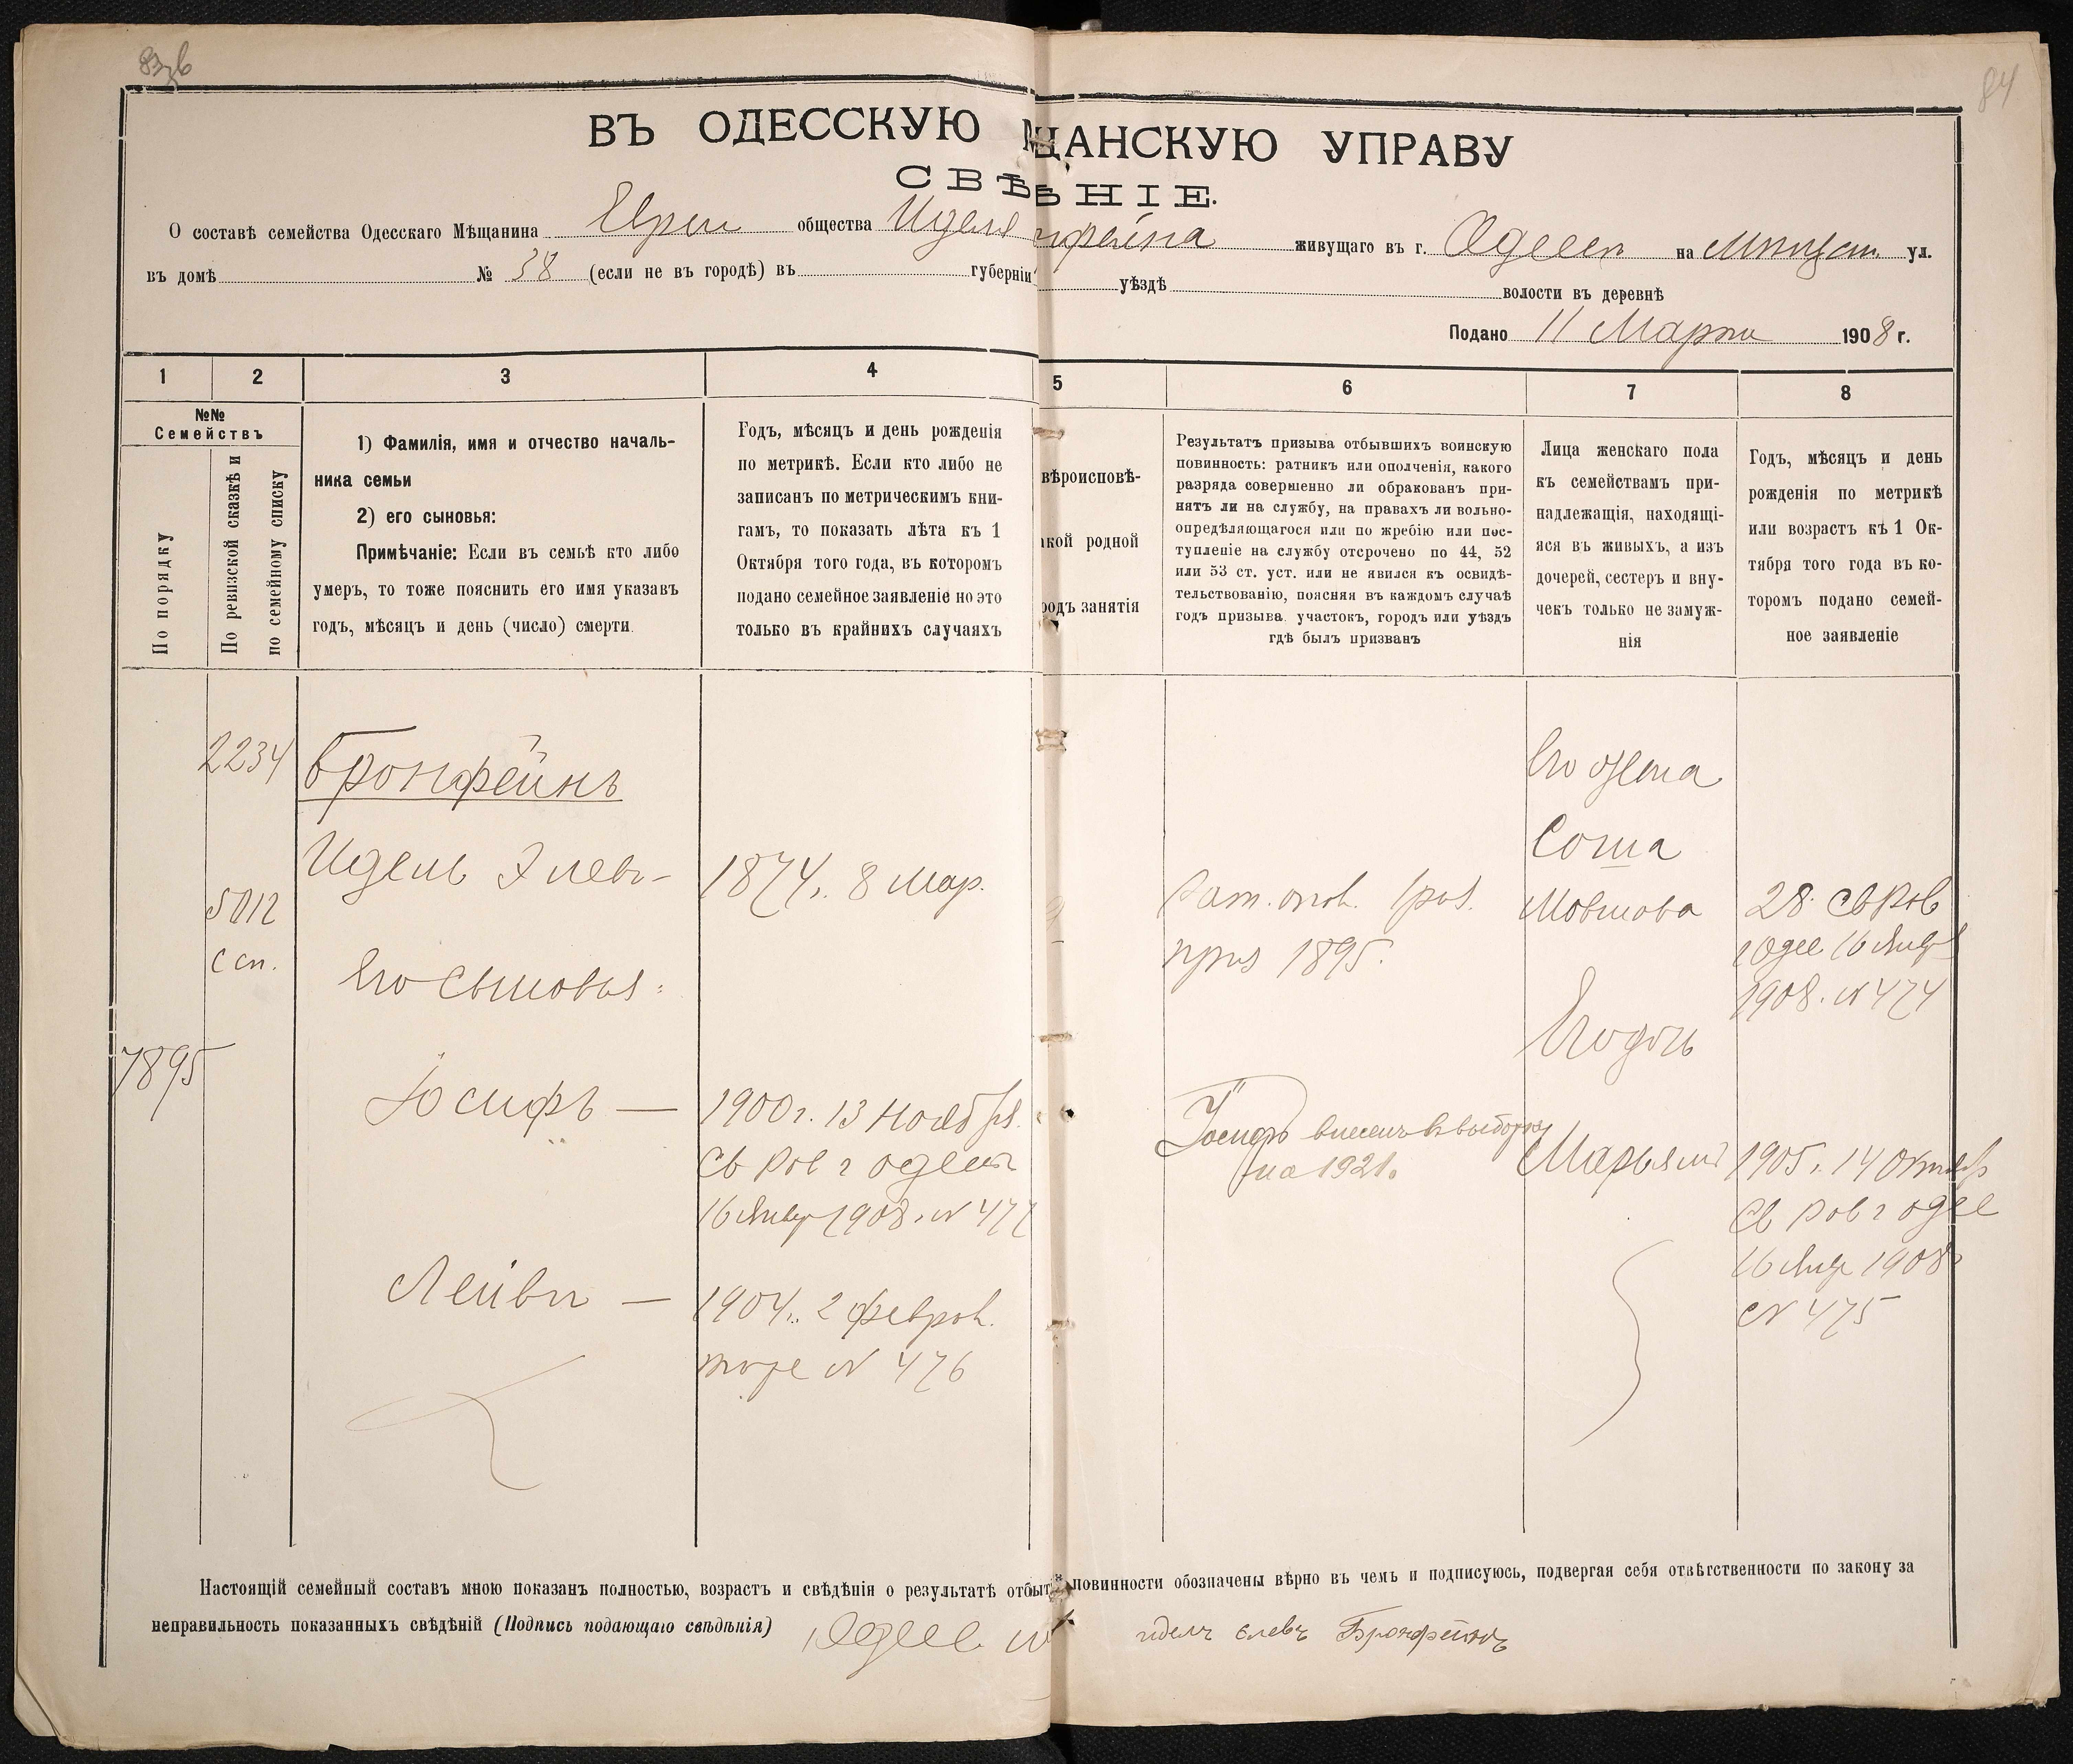 84
ВЪ ОДЕССКУЮ ЩАНСКУЮ УПРАВУ
СВѢ НІЕ.
О составѣ семейства Одесскаго Мѣщанина Евреи общества Иделя нфейна живущаго въ г. Одессѣ на ул.
въ домѣ № 38 (если не въ городѣ) въ губерніи уѣздѣ волости въ деревнѣ
Подано 11 Марта 1908 г.
1 2 3 4 5 6 7 8
№№
Семействъ
По порядку
По ревизской сказкѣ и
по семейному списку
1) Фамилія, имя и отчество началь-
ника семьи
2) его сыновья:
Примѣчаніе: Если въ семьѣ кто либо
умеръ, то тоже пояснить его имя указавъ
годъ, мѣсяцъ и день (число) смерти.
Годъ, мѣсяцъ и день рожденія
по метрикѣ. Если кто либо не
записанъ по метрическимъ кни-
гамъ, то показать лѣта къ 1
Октября того года, въ которомъ
подано семейное заявленіе но это
только въ крайнихъ случаяхъ
вѣроисповѣ-
акой родной
родъ занятія
Результатъ призыва отбывшихъ воинскую
повинность: ратникъ или ополченія, какого
разряда совершенно ли обракованъ при-
нятъ ли на службу, на правахъ ли вольно-
опредѣляющагося или по жребію или пос-
тупленіе на службу отсрочено по 44, 52
или 53 ст. уст. или не явился къ освидѣ-
тельствованію, поясняя въ каждомъ случаѣ
годъ призыва участокъ, городъ или уѣздъ
гдѣ былъ призванъ
Лица женскаго пола
къ семействамъ при-
надлежащія, находящі-
яся въ живыхъ, а изъ
дочерей, сестеръ и вну-
чекъ только не замуж-
нія
Годъ, мѣсяцъ и день
рожденія по метрикѣ
или возрастъ къ 1 Ок-
тября того года въ ко-
торомъ подано семей-
ное заявленіе
2234
Бронфейнъ
Идель Элевъ -
1874г. 8 Мар.
5012
с сп.
Его Сыновья:
7895
Іосифъ —
1900г. 13 Ноября.
Св Рав г Одессы
16 Январ 1908. № 477
Лейви —
1904г. 2 Феврал.
тоже № 476
Рат. опол. 1 раз.
приз 1895.
Іосифъ внесенъ въ выборку
на 1921г.
Его жена
Соша
Мовшова
28. Св Рав
г Одес 16 Январ
1908. № 474
Его дочь
Марьямъ
1905г. 14 Октябр
Св Рав г Одес
16 Янв 1908
№ 475
Настоящій семейный составъ мною показанъ полностью, возрастъ и свѣдѣнія о результатѣ отбыт повинности обозначены вѣрно въ чемъ и подписуюсь, подвергая себя отвѣтственности по закону за
неправильность показанныхъ свѣдѣній (Подпись подающаго свѣдѣнія) иделъ елевъ Бронфейнъ